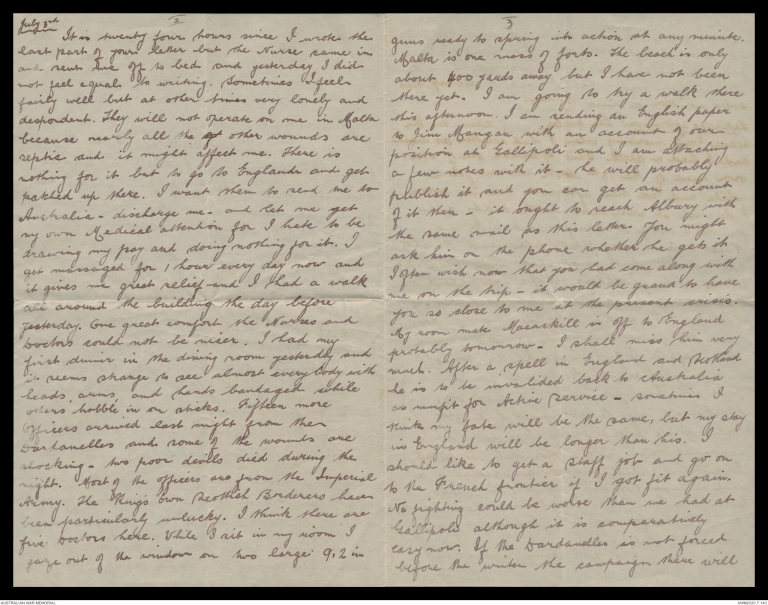 July 3rd
2
It is twenty four hours since I wrote the
last part of your letter but the Nurse came in
and sent me off to bed and yesterday I did
not feel equal to writing. Sometimes I feel
fairly well but at other times very lonely and
despondent. They will not operate on me in Malta
because nearly all the other wounds are
septic and it might affect me. There is
nothing for it but to go to England and get
patched up there. I want them to send me to
Australia - discharge me - and let me get
my own Medical attention for I hate to be
drawing my pay and doing nothing for it. I
get massaged for 1 hour every day now and
it gives me great relief and I had a walk
all around the building the day before
yesterday. One great comfort, the Nurses and
Doctors could not be nicer. I had my
first dinner in the dining room yesterday and
it seems strange to see almost everybody with
heads, arms, and hands bandaged while
others hobble in on sticks. Fifteen more
Officers arrived last night from the
Dardanelles and some of the wounds are
shocking - two poor devils died during the
night. Most of the officers are from the Imperial
Army. The King's Own Scottish Borderers have
been particularly unlucky. I think there are
five Doctors here. While I sit in my room I
gaze out of the window on two large 9.2 in
3
guns ready to spring into action at any minute.
Malta is one mass of forts. The beach is only
about 400 yards away but I have not been
there yet. I am going to try a walk there
this afternoon. I am sending an English paper
to Jim Mangan with an account of our
position at Gallipoli and I am attaching
a few notes with it - he will probably
publish it and you can get an account
of it then - it ought to reach Albury with
the same mail as this letter. You might
ask him on the phone whether he gets it
I often wish now that you had come along with
me on the trip - it would be grand to have
you so close to me at the present crisis.
My room mate Macaskill is off to England
probably tomorrow - I shall miss him very
much. After a spell in England and Scotland
he is to be invalided back to Australia
as unfit for Active Service - sometimes I
think my fate will be the same, but my stay
in England will be longer than his. I
should like to get a staff job and go on
to the French frontier if I got fit again.
No fighting could be worse than we had at
Gallipoli although it is comparatively
easy now. If the Dardanelles is not forced
before the winter the campaign there will
AUSTRALIAN WAR MEMORIAL
AWM2020.7.143